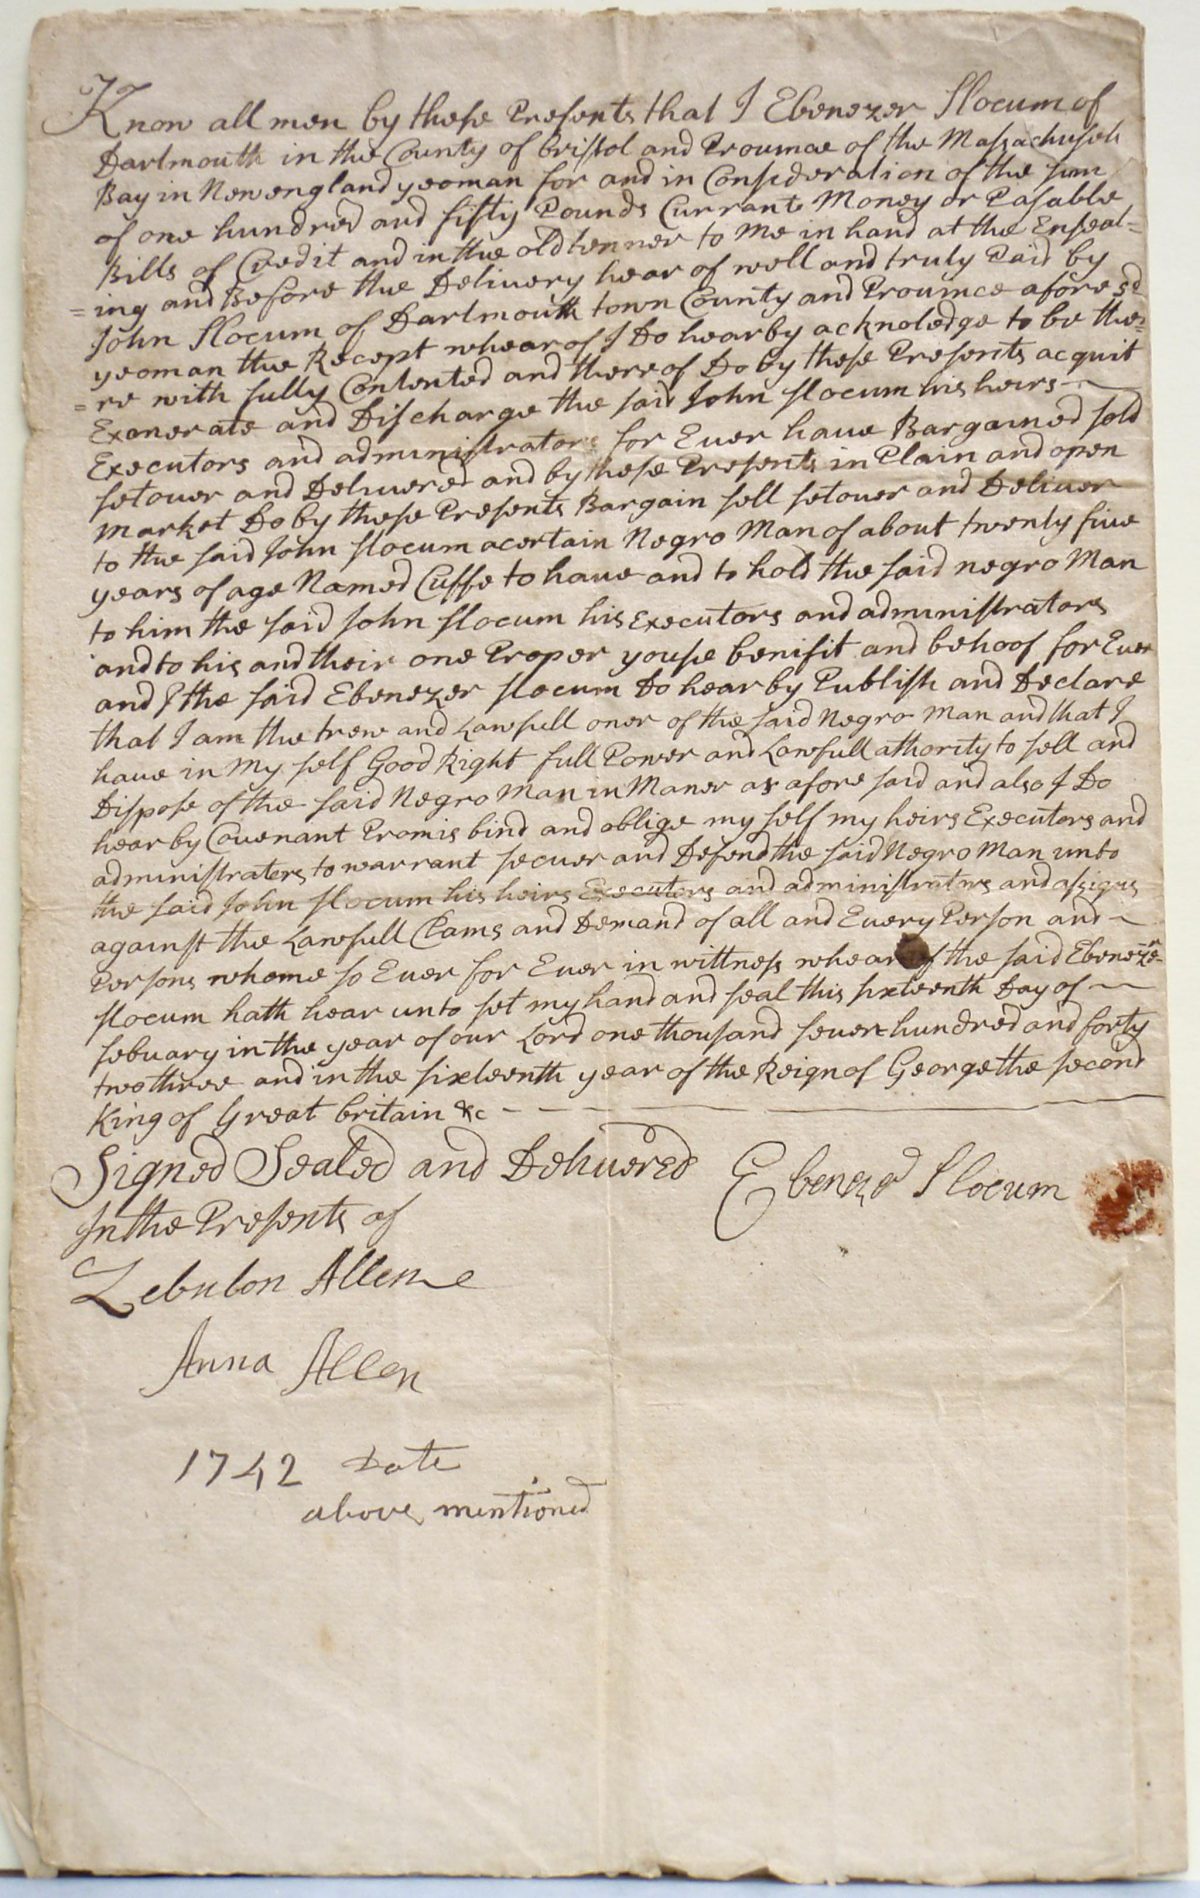 Know all men by these Presents that I Ebenezer Slocum of
Dartmouth in the County of Bristol and Prouince of the Massachusets
Bay in Newengland yeoman for and in Consideration of the sum
of one hundred and fifty Pounds Currant Money or Pasable
Bills of Credit and in the old tenner to Me in hand at the Enseal=
=ing and Before the Deliuery hear of well and truly Paid by
John Slocum of Dartmouth town County and Prouince afore sd
yeoman the Recept whear of I Do hearby acknoledge to be the=
=re with fully Contented and there of Do by these Presents acquit
Exonerate and Discharge the said John slocum his heirs
Executors and administrators for Euer haue Bargained sold
setouer and Deliuered and by these Presents in Plain and open
market Do by these Presents Bargain sell setouer and Deliuer
to the said John slocum a certain Negro Man of about twenty fiue
years of age Named Cuffe to haue and to hold the said negro Man
to him the said John slocum his Executors and administrators
and to his and their one Proper youse benifit and behoof for Euer
and I the said Ebenezer slocum Do hearby Publish and Declare
that I am the trew and Lawfull oner of the said Negro Man and that I
haue in My self Good Right full Power and Lawfull athority to sell and
Dispose of the said Negro Man in Maner as afore said and also I Do
hearby Couenant Promis bind and oblige my self my heirs Executors and
administraters to warrant secuer and Defend the said Negro Man unto
the said John slocum his heirs Executors and administrators and assigns
against the Lawfull Clams and Demand of all and Euery Person and
Persons whome so Euer for Euer in wittness whear of the said Ebenezer
slocum hath hear unto set my hand and seal this sixteenth Day of
febuary in the year of our Lord one thousand seuen hundred and forty
two three and in the sixteenth year of the Reign of George the second
King of Great britain &c
Signed Sealed and Deliuered
Ebenezer Slocum
In the Presents of
Zebulon Allen
Anna Allen
1742 Date
above mentioned